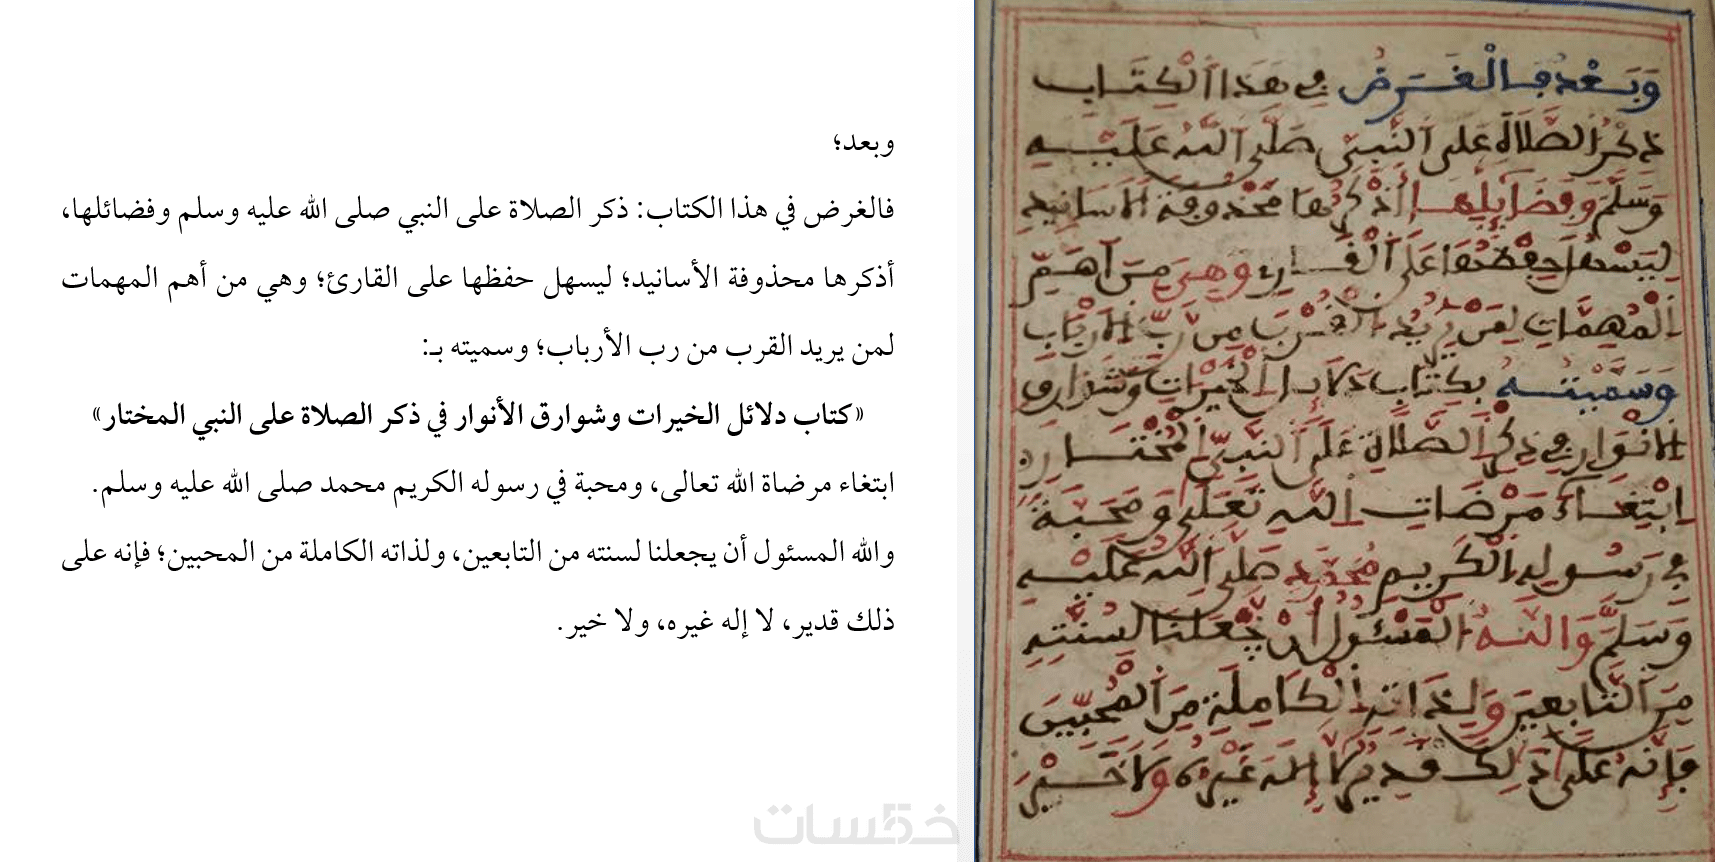 وبعد؛
فالغرض في هذا الكتاب: ذكر الصلاة على النبي صلى الله عليه وسلم وفضائلها،
أذكرها محذوفة الأسانيد؛ ليسهل حفظها على القارئ؛ وهي من أهم المهمات
لمن يريد القرب من رب الأرباب؛ وسميته بـ:
«كتاب دلائل الخيرات وشوارق الأنوار في ذكر الصلاة على النبي المختار»
ابتغاء مرضاة الله تعالى، ومحبة في رسوله الكريم محمد صلى الله عليه وسلم.
والله المسئول أن يجعلنا لسنته من التابعين، ولذاته الكاملة من المحبين؛ فإنه على
ذلك قدير، لا إله غيره، ولا خير.
وَبَعْدُ فَالْغَرَضُ فِي هَذَا الْكِتَابِ
ذِكْرُ الصَّلَاةِ عَلَى النَّبِيِّ صَلَّى اللَّهُ عَلَيْهِ
وَسَلَّمَ وَفَضَائِلِهَا أَذْكُرُهَا مَحْذُوفَةَ الْأَسَانِيدِ
لِيَسْهُلَ حِفْظُهَا عَلَى الْقَارِئِ وَهِيَ مِنْ أَهَمِّ
الْمُهِمَّاتِ لِمَنْ يُرِيدُ الْقُرْبَ مِنْ رَبِّ الْأَرْبَابِ
وَسَمَّيْتُهُ بِكِتَابِ دَلَائِلِ الْخَيْرَاتِ وَشَوَارِقِ
الْأَنْوَارِ فِي ذِكْرِ الصَّلَاةِ عَلَى النَّبِيِّ الْمُخْتَارِ
ابْتِغَاءَ مَرْضَاتِ اللَّهِ تَعَلَى وَمَحَبَّةً
فِي رَسُولِهِ الْكَرِيمِ مُحَمَّدٍ صَلَّى اللَّهُ عَلَيْهِ
وَسَلَّمَ وَاللَّهُ الْمَسْئُولُ أَنْ يَجْعَلَنَا لِسُنَّتِهِ
مِنَ التَّابِعِينَ وَلِذَاتِهِ الْكَامِلَةِ مِنَ الْمُحِبِّينَ
فَإِنَّهُ عَلَى ذَلِكَ قَدِيرٌ لَا إِلَهَ غَيْرُهُ وَلَا خَيْرَ
خمسات